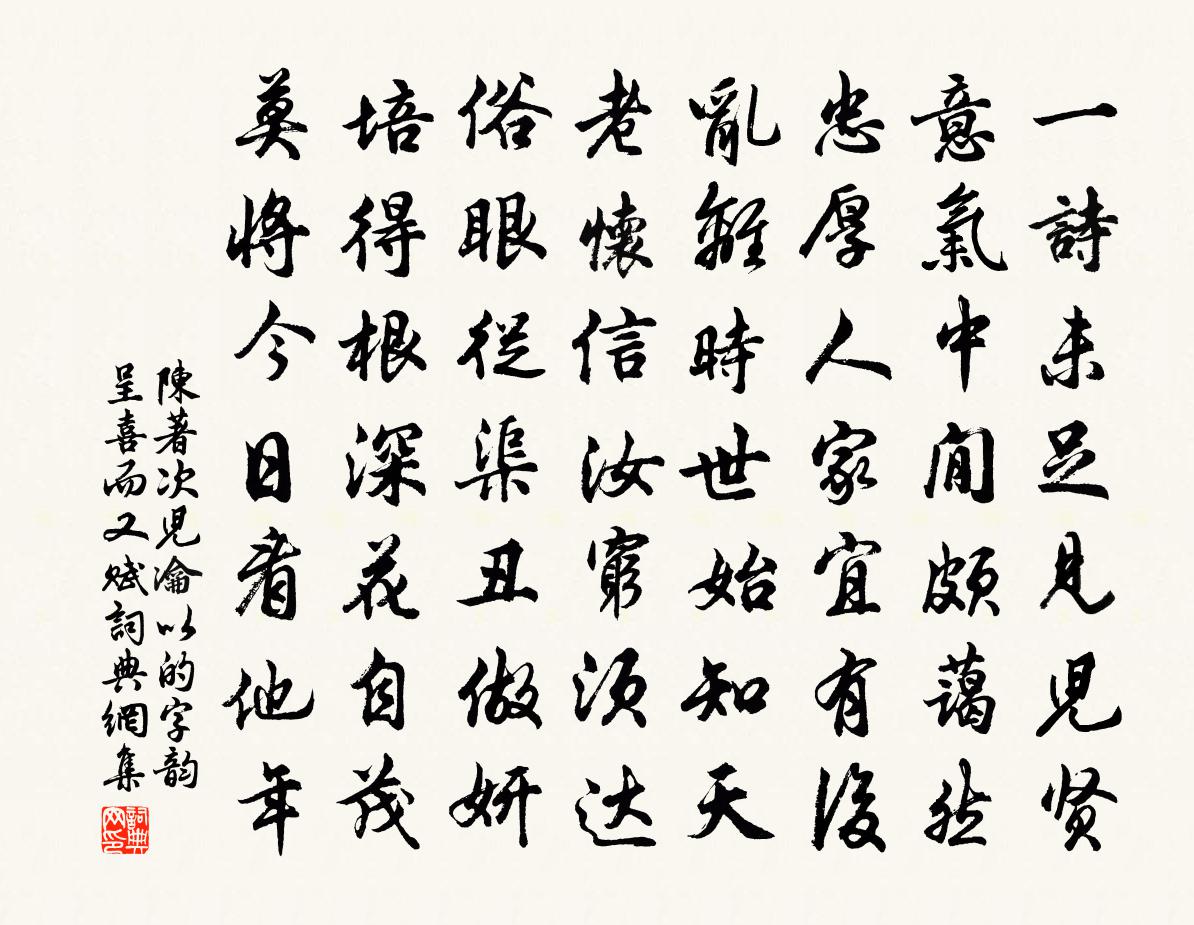 一詩未足見兒贤
意氣中間頗藹然
忠厚人家宜有後
亂離時世始知天
老懷信汝窮須达
俗眼從渠丑做妍
培得根深花自茂
莫將今日看他年
陳著次兒瀹以的字韵
呈喜而又赋詞典網集
詞典
网印